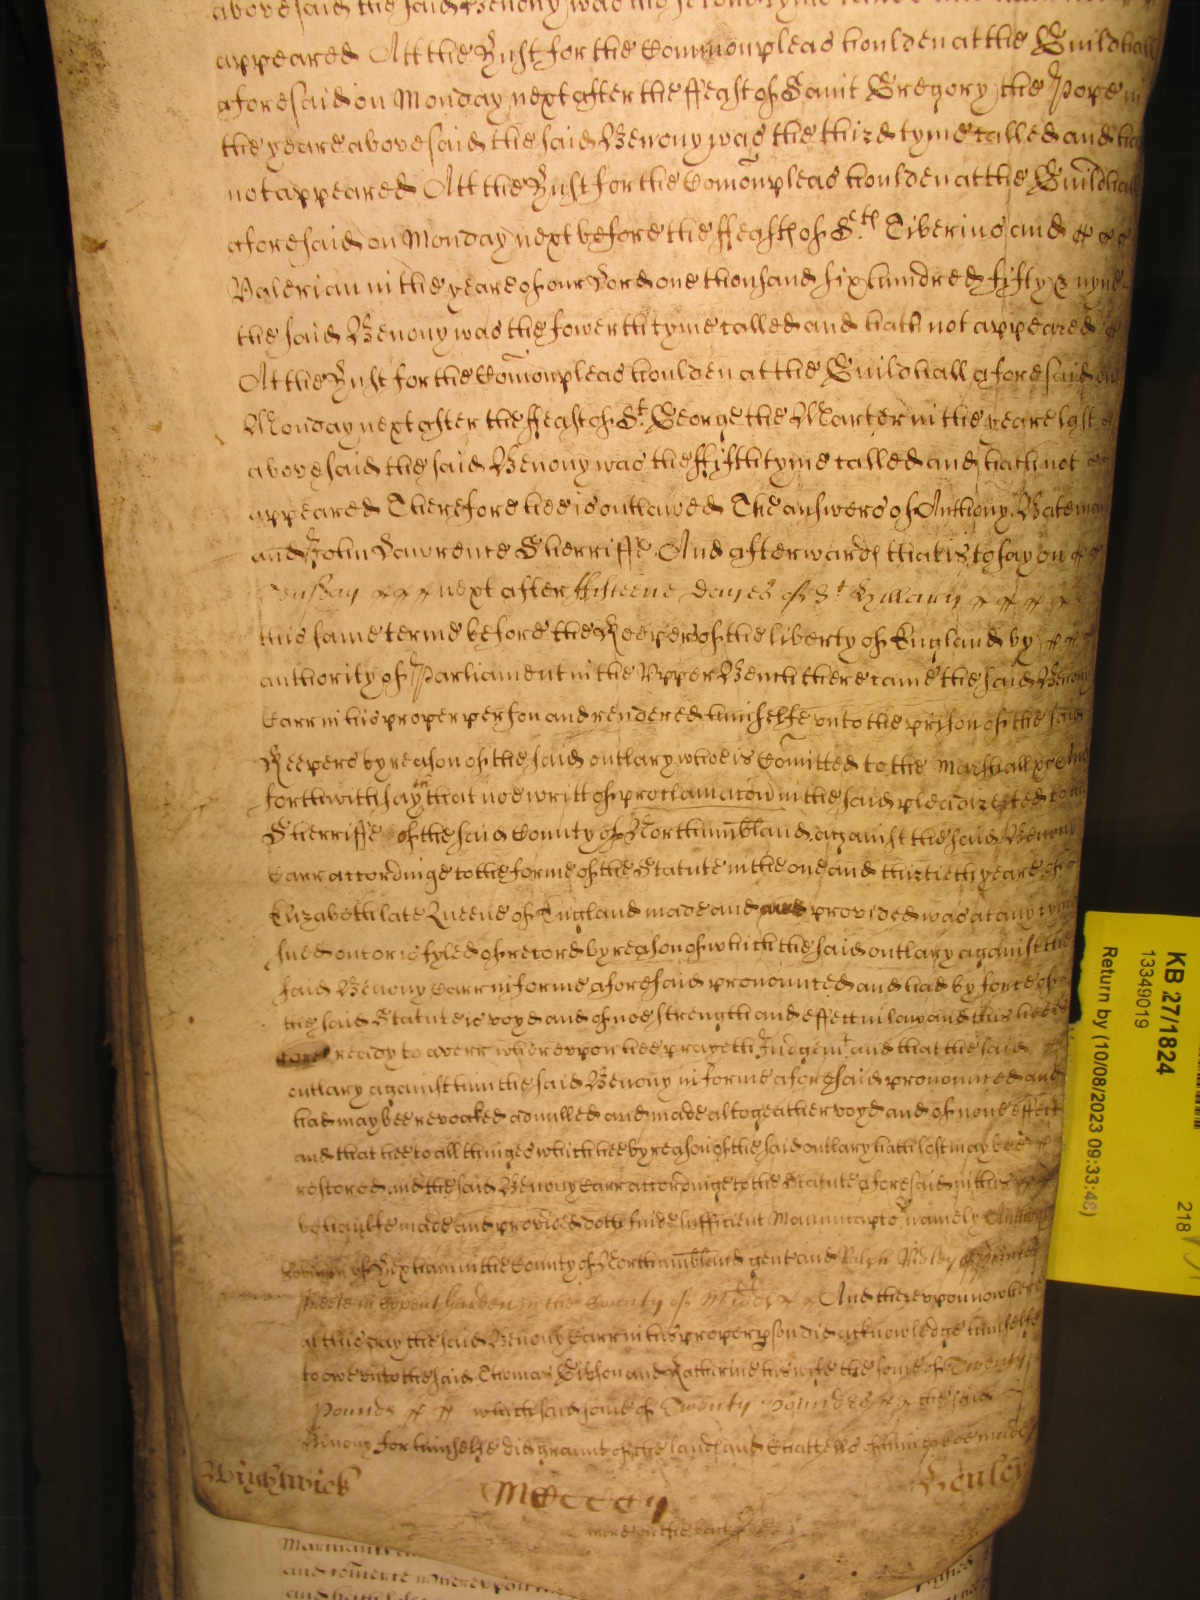 abovesaid the said Benony was the second tyme
appeared Att the Hust for the Common pleas houlden at the Guildhall
aforesaid on Monday next after the ffeast of Saint Gregory the Pope in
the yeare abovesaid the said Benony was the third tyme called and hath
not appeared Att the Hust for the Comon pleas houlden at the Guildhall
aforesaid on Monday next before the ffeast of S.ts Tiberius and
Valerian in the yeare of our Lord one thousand six hundred fifty & nyne
the said Benony was the fowerth tyme called and hath not appeared
At the Hust for the Comon pleas houlden at the Guildhall aforesaid on
Monday next after the ffeast of St. George the Marter in the yeare last
abovesaid the said Benony was the ffifth tyme called and hath not
appeared Therefore hee is outlawed The answers of Anthony Bateman
and John Lawrence Sherriffe And afterwards that is to say on
next after ffifteene dayes of St Hillary
this same terme before the Keepers of the liberty of England by
authority of Parliament in the Upper Bench there came the said Benony
Carr in his proper person and rendered himselfe unto the prison of the said
Keepers by reason of the said outlary whoe is Comitted to the Marshall &c And
forthwith sayth that noe writt of proclamacon in the said plea directed to
Sherriffe of the said County of Northumbland against the said Benony
Carr accordinge to the forme of the Statute in the one and thirtieth yeare of
Elizabeth late Queene of England made and provided was at any tyme
sued out or is fyled of record by reason of which the said outlary against the
said Benony Carr in forme aforesaid pronounced and had by force of
the said Statute is voyd and of noe strength and effect in law and this hee is
ready to averr whereupon hee prayeth Judgemt and that the said
outlary against him the said Benony in forme aforesaid pronounced and
had may bee revoaked adnulled and made altogeather voyd and of none effect
and that hee to all thinges which hee by reason of the said outlary hath lost may bee
restored and the said Benony Carr accordinge to the Statute aforesaid in this
behaulfe made and provided doth finde sufficient Manucapto namely Anthony
of Hexham in the County of Northumbland gent and Ralph Ridley
in Covent Garden in the County of Middx And thereupon now here
at this day the said Benony Carr in his proper pson did acknowledge himselfe
to owe unto the said Thomas Gibson and Katherine his wife the some of Twenty
Pounds which said some of Twenty Poundes the said
Benony for himselfe did graunt of the lands and Chattells of him to bee made
Wightwick MCCCCij Henley
more on the back
and
and hath
KB 27/1824
13349019
Return by (10/08/2023 09:33:48)
218